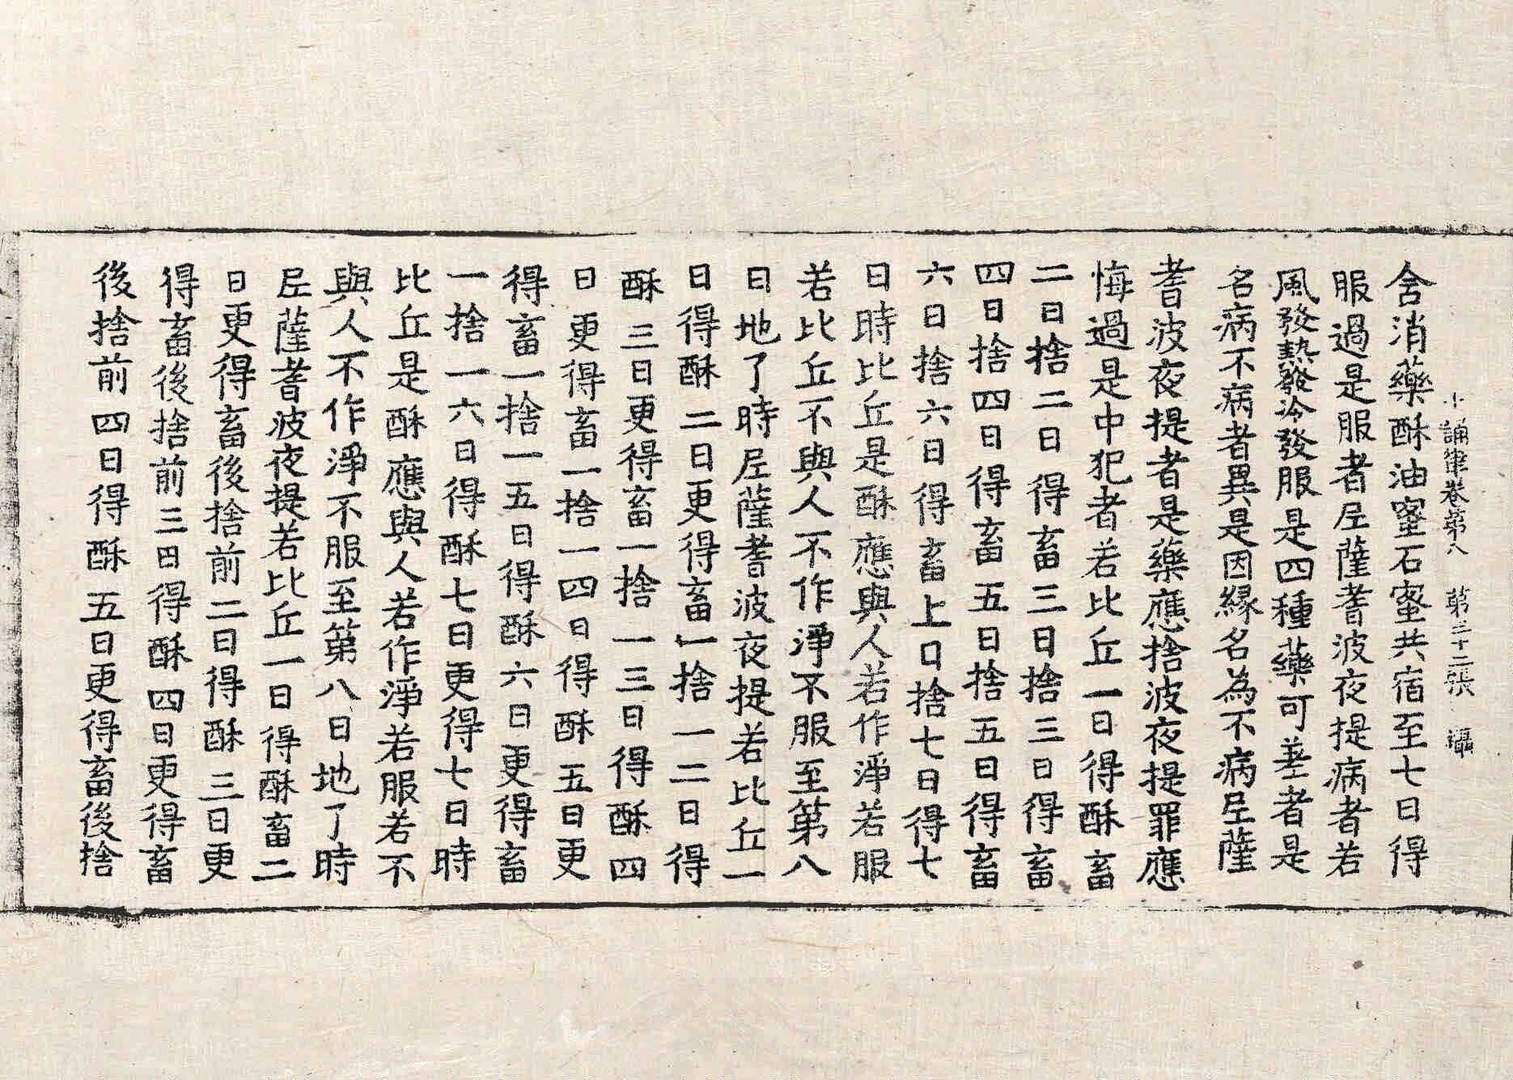 十誦律卷第八　第三十二張　攝
含消藥酥油蜜石蜜共宿至七日得
服過是服者尼薩耆波夜提病者若
風發熱發冷發服是四種藥可差者是
名病不病者異是因緣名為不病尼薩
耆波夜提者是藥應捨波夜提罪應
悔過是中犯者若比丘一日得酥畜
二日捨二日得畜三日捨三日得畜
四日捨四日得畜五日捨五日得畜
六日捨六日得畜上口捨七日得七
日時比丘是酥應與人若作淨若服
若比丘不與人不作淨不服至第八
日地了時尼薩耆波夜提若比丘一
日得酥二日更得畜一捨一二日得
酥三日更得畜一捨一三日得酥四
日更得畜一捨一四日得酥五日更
得畜一捨一五日得酥六日更得畜
一捨一六日得酥七日更得七日時
比丘是酥應與人若作淨若服若不
與人不作淨不服至第八日地了時
尼薩耆波夜提若比丘一日得酥畜二
日更得畜後捨前二日得酥三日更
得畜後捨前三日得酥四日更得畜
後捨前四日得酥五日更得畜後捨